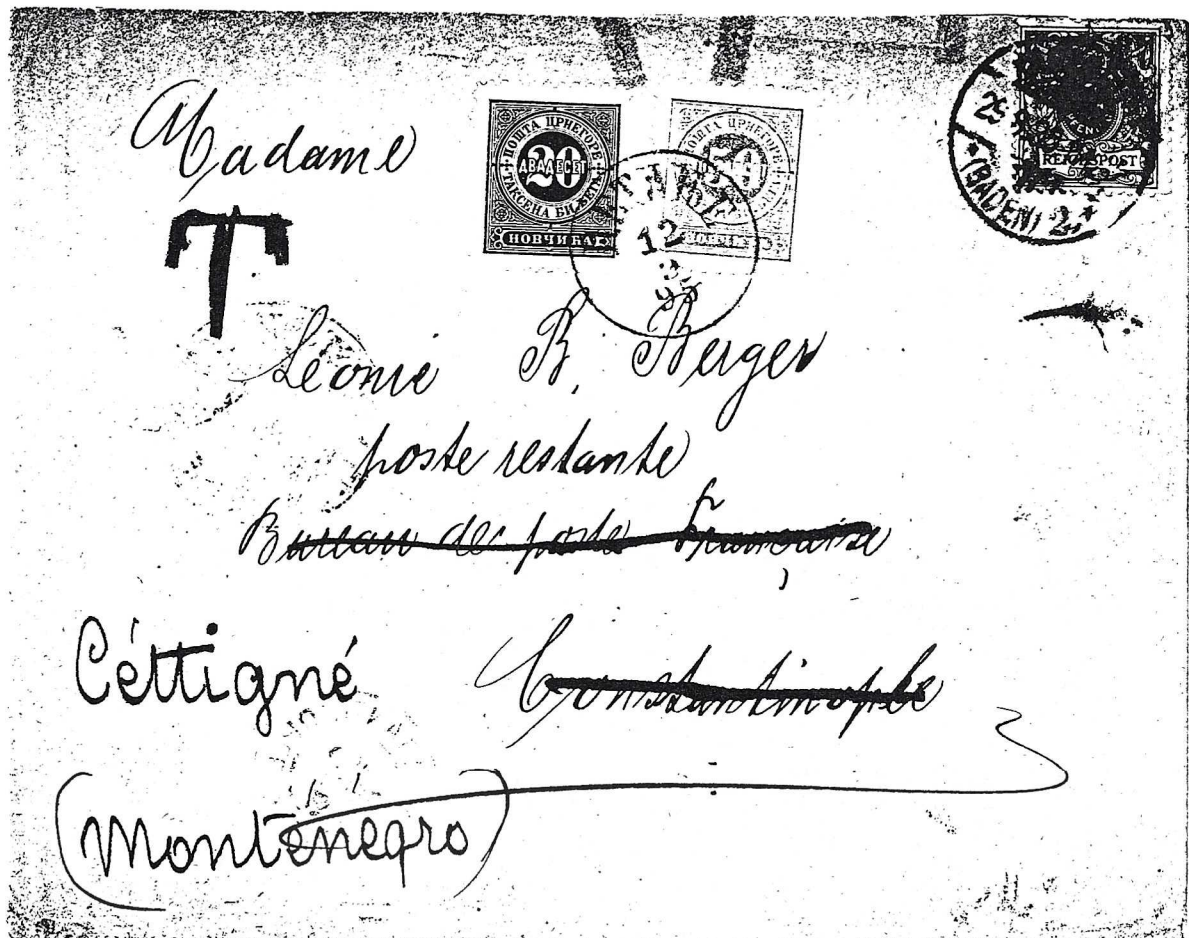 Madame
T
ПОШТА ЦРНЕГОРЕ
ДВАДЕСЕТ
20
ТАКСЕНА БИЉЕГА
НОВЧИЋА
ПОШТА ЦРНЕГОРЕ
12
3
95
25
REICHSPOST
(BADEN) 2
Léonie B. Berger
poste restante
Bureau des postes Française
Céttigné
Constantinople
(Monténégro)